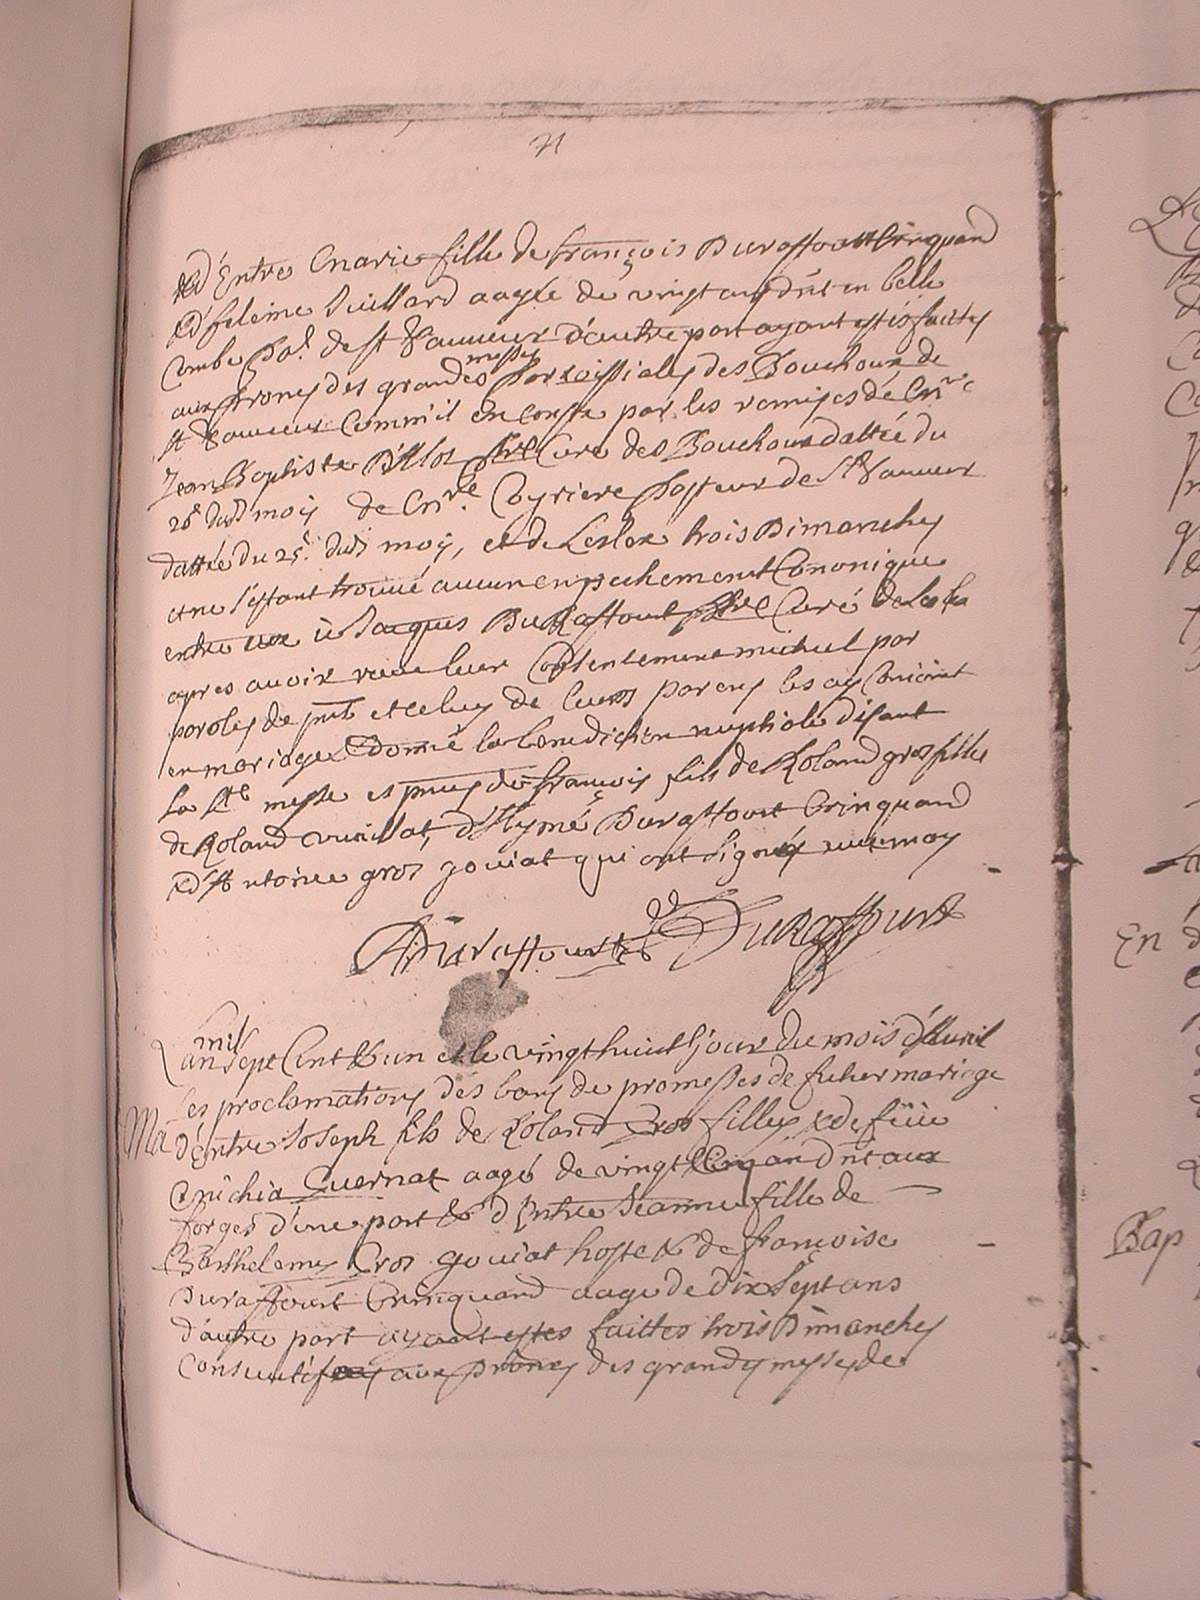 & d'Entre Marie fille de françois Duraffourt brinquand
& d'heleine Vuillard aagée de vingt ans d'ût en belle
Combe par. de st Sauveur d'autre part ayant estés faittes
aux prones des grandes messes paroissiales des Bouchoux de
st Sauveur comm'il en conste par les remises de Mre
Jean Baptiste pbre Curé des Bouchoux dattée du
26e dud mois de Mre Coyriere pasteur de St Sauveur
dattée du 25e dud moy, et de Leslex trois Dimanches
et ne s'estant trouvé aucun enpechement Cononique
entre eux ie Jacques Duraffourt pbre Curé de
apres avoir receu leur Consentement mutuel par
paroles de pnt et celuy de leurs parens les ay Conioint
en mariage & donné la benediction nuptiale disant
La ste messe es pnces de françois fils de Roland gros fillie
de Roland vuillat, d'hymé Duraffourt brinquand
& d'Antoine gros goviat qui ont signéz avec moy
Duraffourt
Duraffourt
mil
Lan sept Cent & un et le vingt huict jour du mois d'Avril
Les proclamations des bans de promesses de futur mariage
Ma d'Entre Joseph fils de Roland Gros filley & de füe
Michia Guernat aagé de vingt Cinq an d'ût aux
forges d'une part & d'Entre Jeanne fille de
Barthelemy Gros goviat hoste & de françoise
Duraffourt brinquand aage de dix Sept ans
d'autre part ayant estes faittes trois Dimanches
Consecutifs aux prones des grandes messes de
En
Bap